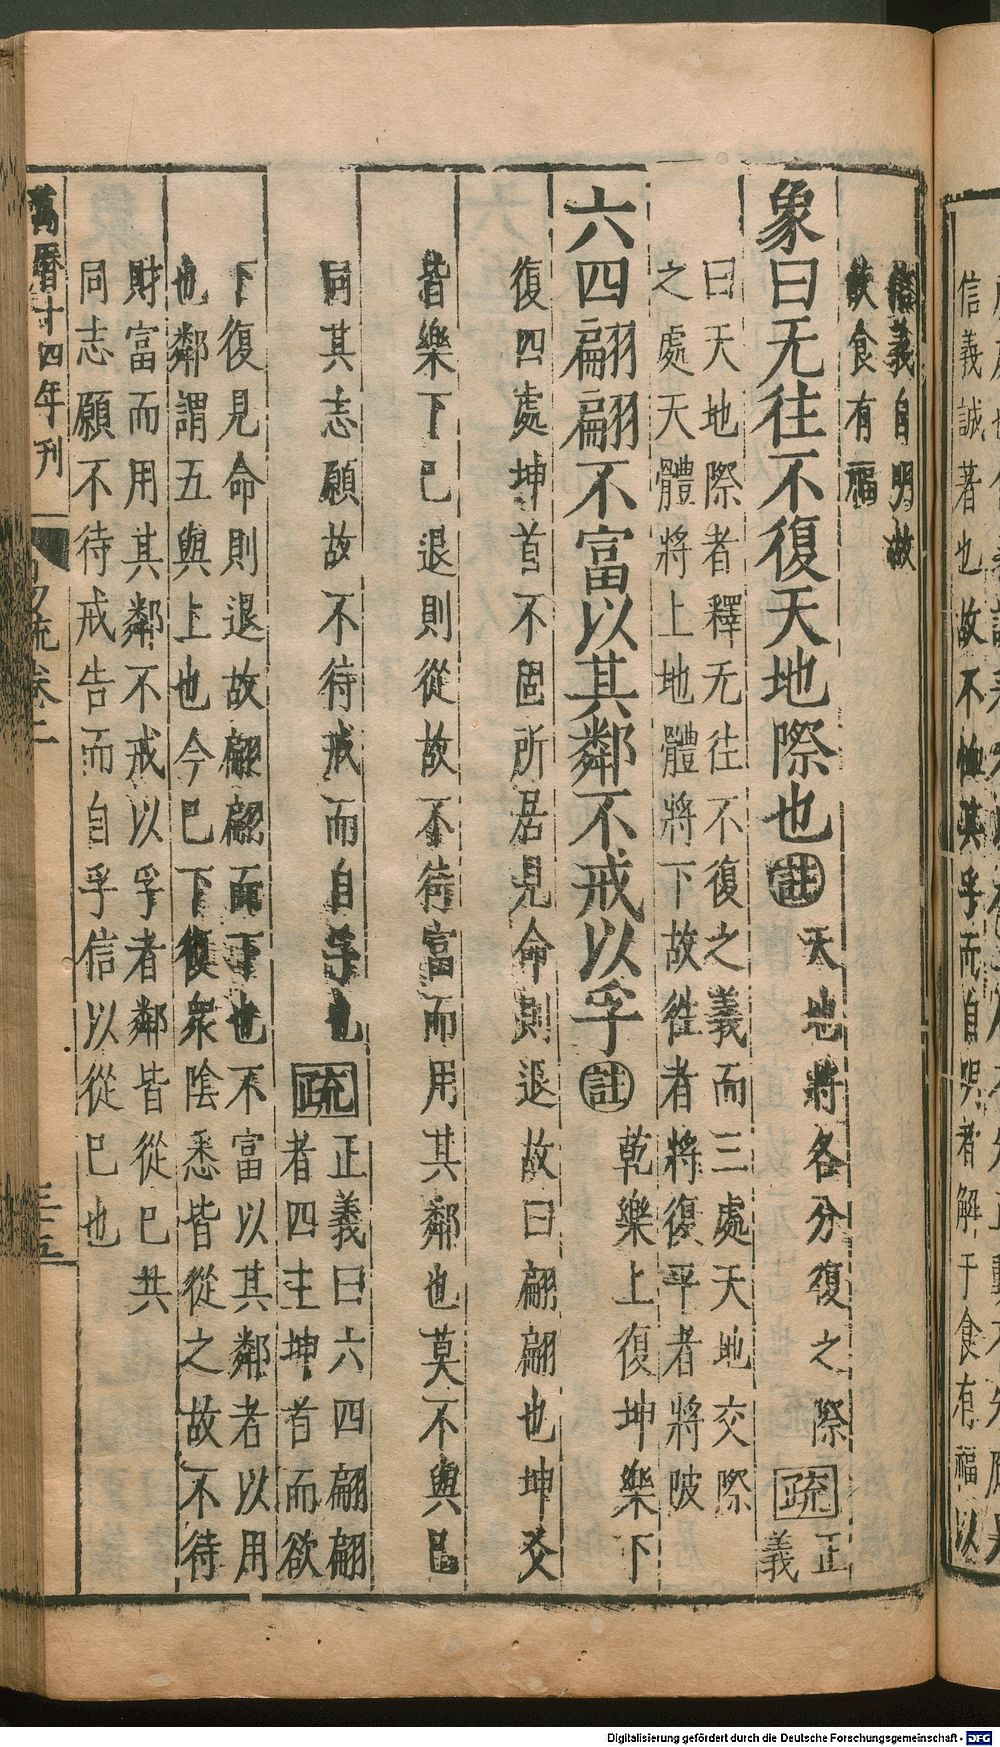 信義誠著也故不恤其孚而自明者解于食有福以
信義自明故
飲食有福
象曰无往不復天地際也 註 天地將各分復之際 疏 正
義
曰天地際者釋无往不復之義而三處天地交際
之處天體將上地體將下故徃者將復平者將陂
六四翩翩不富以其鄰不戒以孚 註 乾樂上復坤樂下
復四處坤首不固所居見命則退故曰翩翩也坤爻
皆樂下己退則從故不待富而用其鄰也莫不與己
同其志願故不待戒而自孚也 疏 正義曰六四翩翩
者四主坤首而欲
下復見命則退故翩翩而下也不富以其鄰者以用
也鄰謂五與上也今巳下復衆陰悉皆從之故不待
財富而用其鄰不戒以孚者鄰皆從巳共
同志願不待戒告而自孚信以從巳也
萬曆十四年刊
易疏卷二
Digitalisierung gefördert durch die Deutsche Forschungsgemeinschaft - DFG